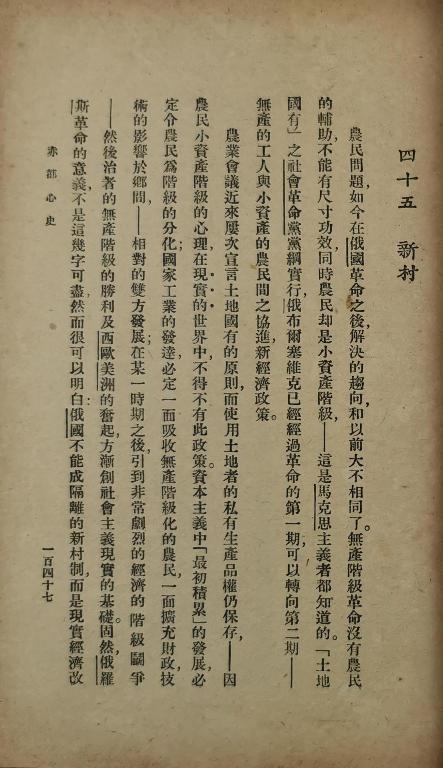 四十五　新村
農民問題，如今在俄國革命之後，解決的趨向，和以前大不相同了。無產階級革命沒有農民
的輔助，不能有尺寸功效同時農民却是小資產階級，——這是馬克思主義者都知道的。「土地
國有」之社會革命黨黨綱實行，俄布爾塞維克已經經過革命的第一期；可以轉向第二期——
無產的工人與小資產的農民間之協進，新經濟政策。
農業會議近來屢次宣言土地國有的原則，而使用土地者的私有生產品權仍保存，——因
農民小資產階級的心理，在現實的世界中，不得不有此政策。資本主義中「最初積累」的發展，必
定令農民爲階級的分化；國家工業的發達，必定一面吸收無產階級化的農民，一面擴充財政技
術的影響於鄉間——相對的雙方發展；在某一時期之後，引到非常劇烈的經濟的階級鬭爭
——然後治者的無產階級的勝利及西歐美洲的奮起，方漸創社會主義現實的基礎。固然，俄羅
斯革命的意義，不是這幾字可盡，然而很可以明白：俄國不能成隔離的新村制，而是現實經濟改
赤都心史
一百四十七